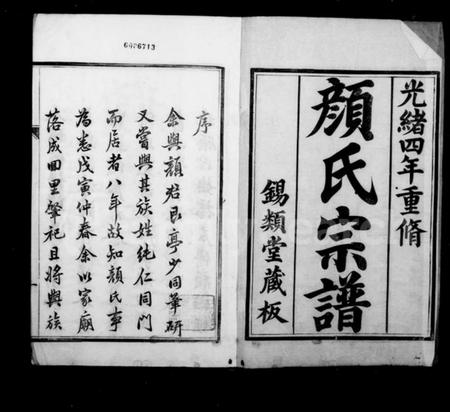 光緒四年重脩
顔氏宗譜
錫類堂藏板
6486713
序
余與顔君昂亭少同筆研
又嘗與其族姓純仁同門
而居者八年故知顔氏事
為悉戊寅仲春余以家廟
落成回里肇祀且將與族